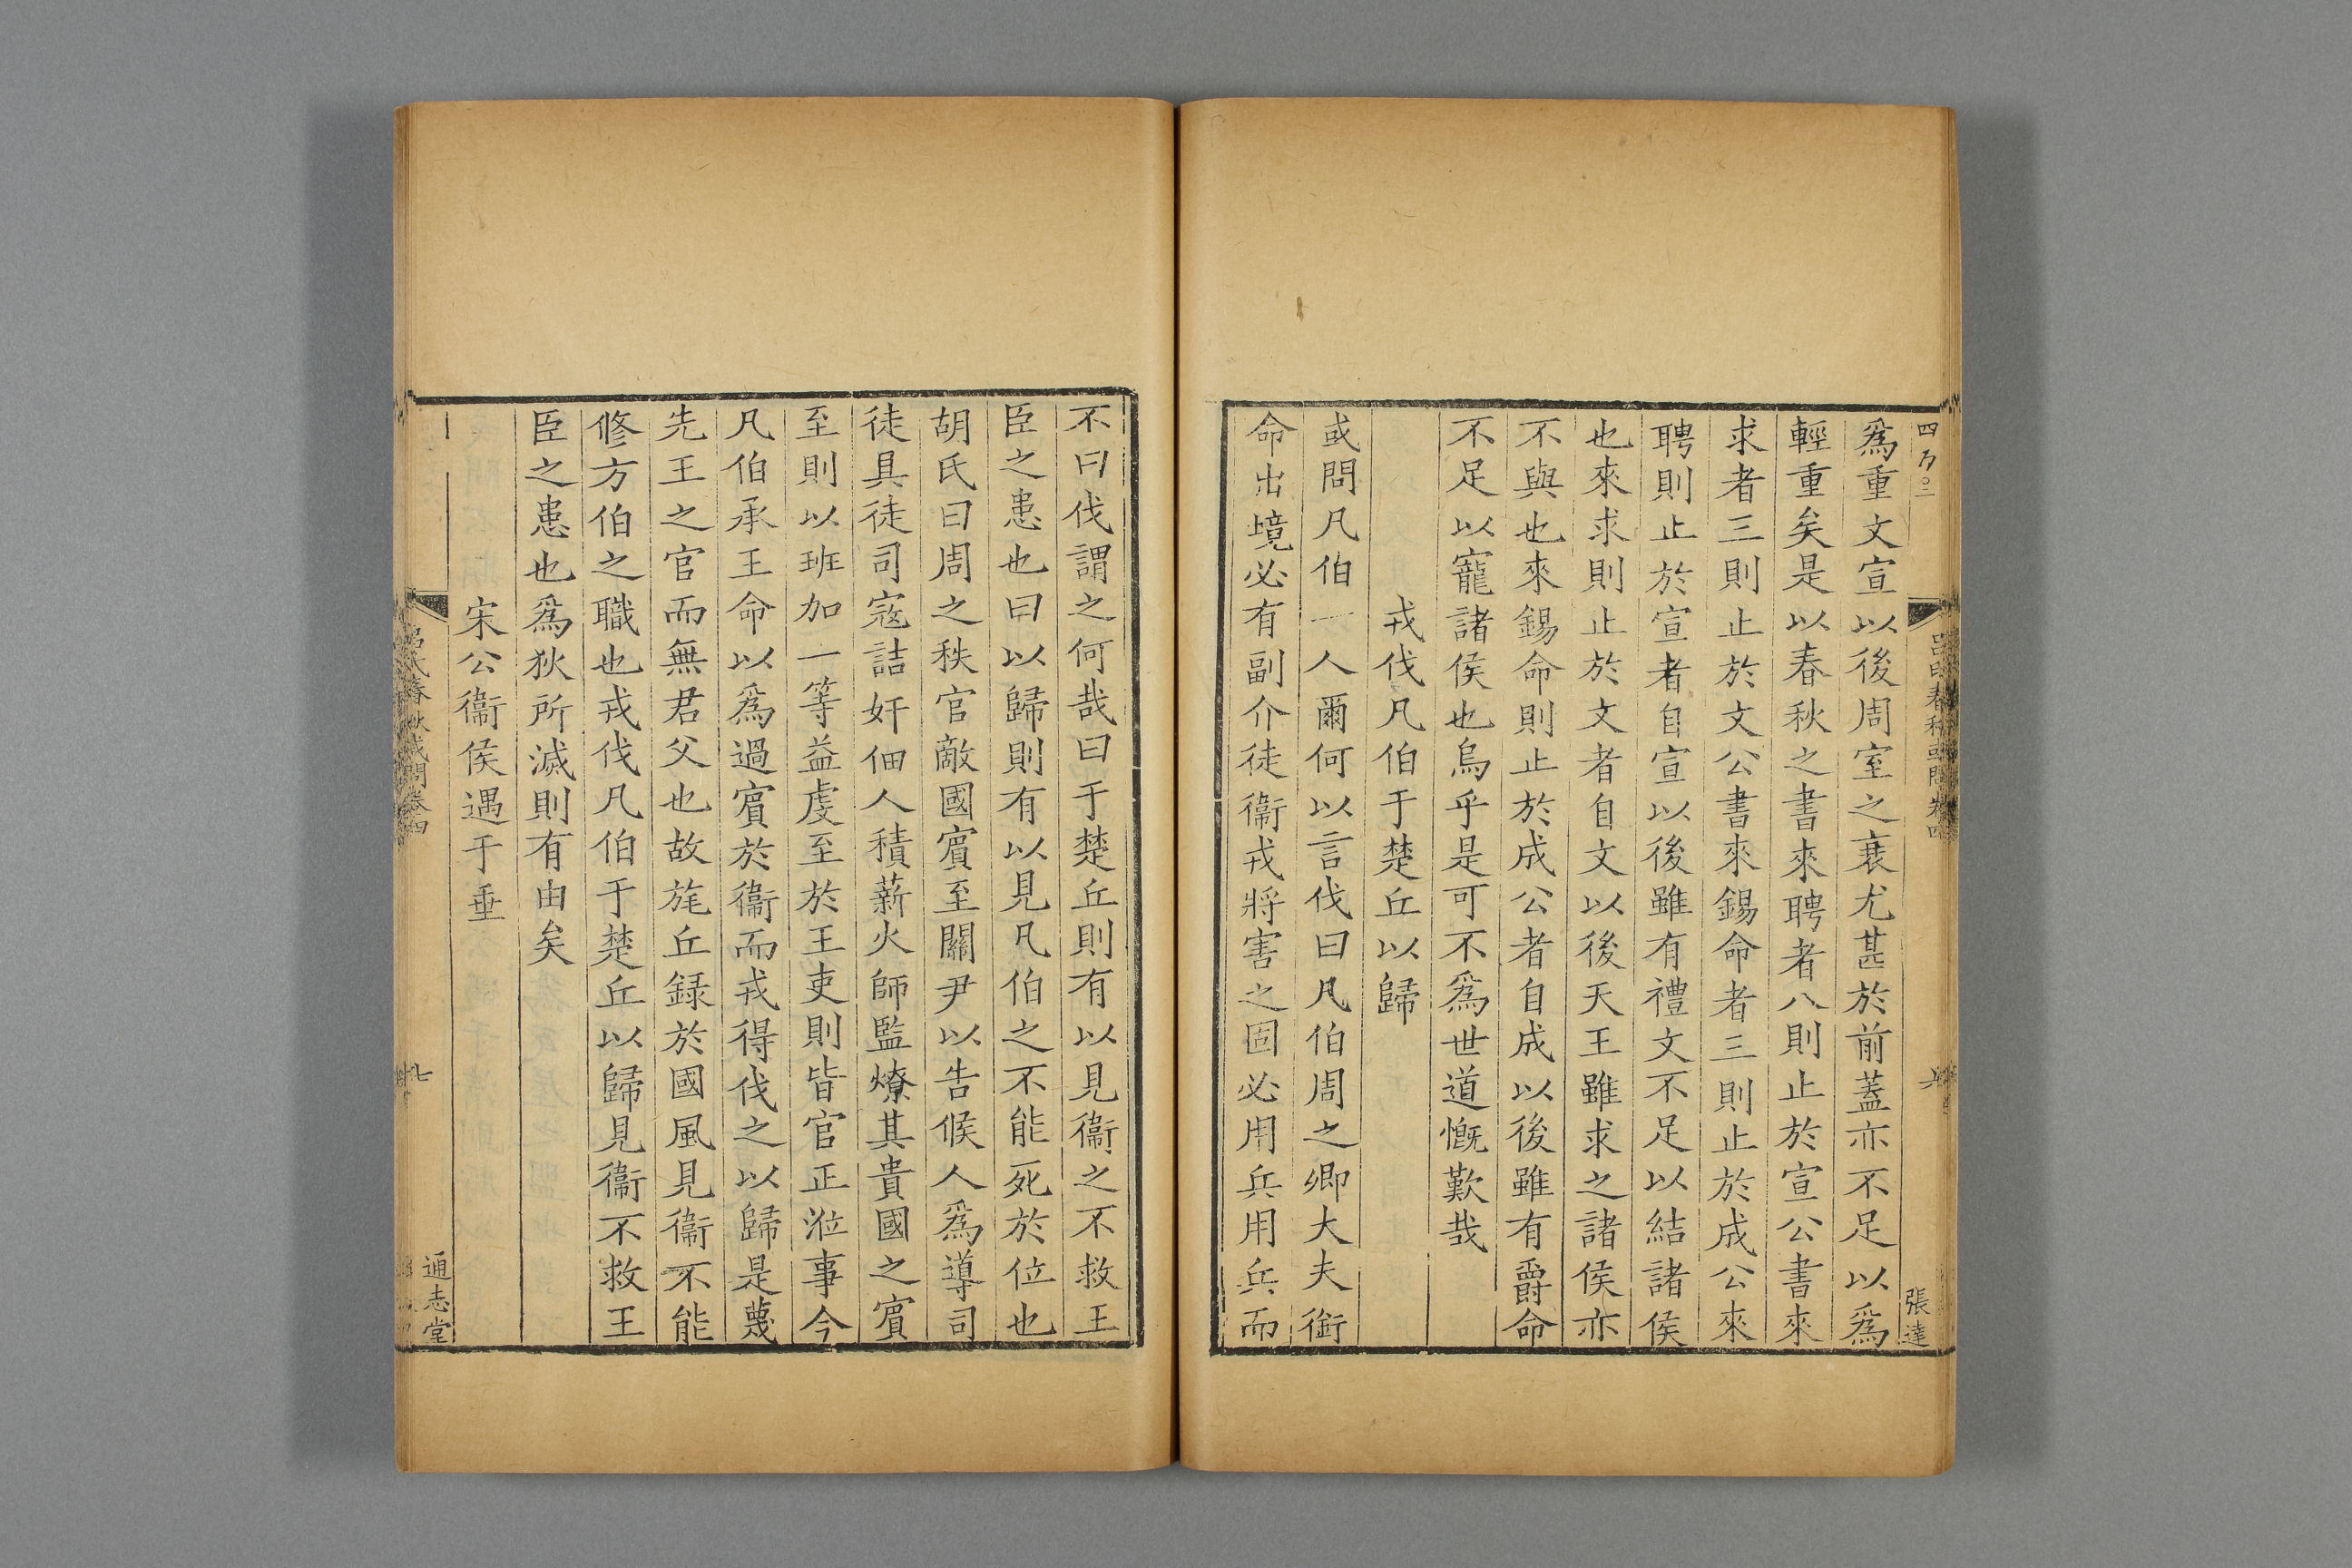 爲重文宣以後周室之衰尤甚於前蓋亦不足以爲
輕重矣是以春秋之書來聘者八則止於宣公書來
求者三則止於文公書來錫命者三則止於成公來
聘則止於宣者自宣以後雖有禮文不足以結諸侯
也來求則止於文者自文以後天王雖求之諸侯亦
不與也來錫命則止於成公者自成以後雖有爵命
不足以寵諸侯也烏乎是可不爲世道慨歎哉
戎伐凡伯于楚丘以歸
或問凡伯一人爾何以言伐曰凡伯周之卿大夫銜
命出境必有副介徒衞戎將害之固必用兵用兵而
張達
不曰伐謂之何哉曰于楚丘則有以見衞之不救王
臣之患也曰以歸則有以見凡伯之不能死於位也
胡氏曰周之秩官敵國賓至關尹以告候人爲導司
徒具徒司寇詰奸佃人積薪火師監燎其貴國之賓
至則以班加一等益虔至於王吏則皆官正涖事今
凡伯承王命以爲過賓於衞而戎得伐之以歸是蔑
先王之官而無君父也故旄丘録於國風見衞不能
修方伯之職也戎伐凡伯于楚丘以歸見衞不救王
臣之患也爲狄所滅則有由矣
宋公衞侯遇于垂
呂氏春秋或問卷四
七
通志堂